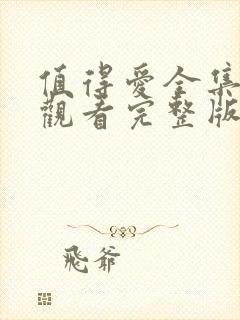 值得愛全集
觀看完整版
飛爺